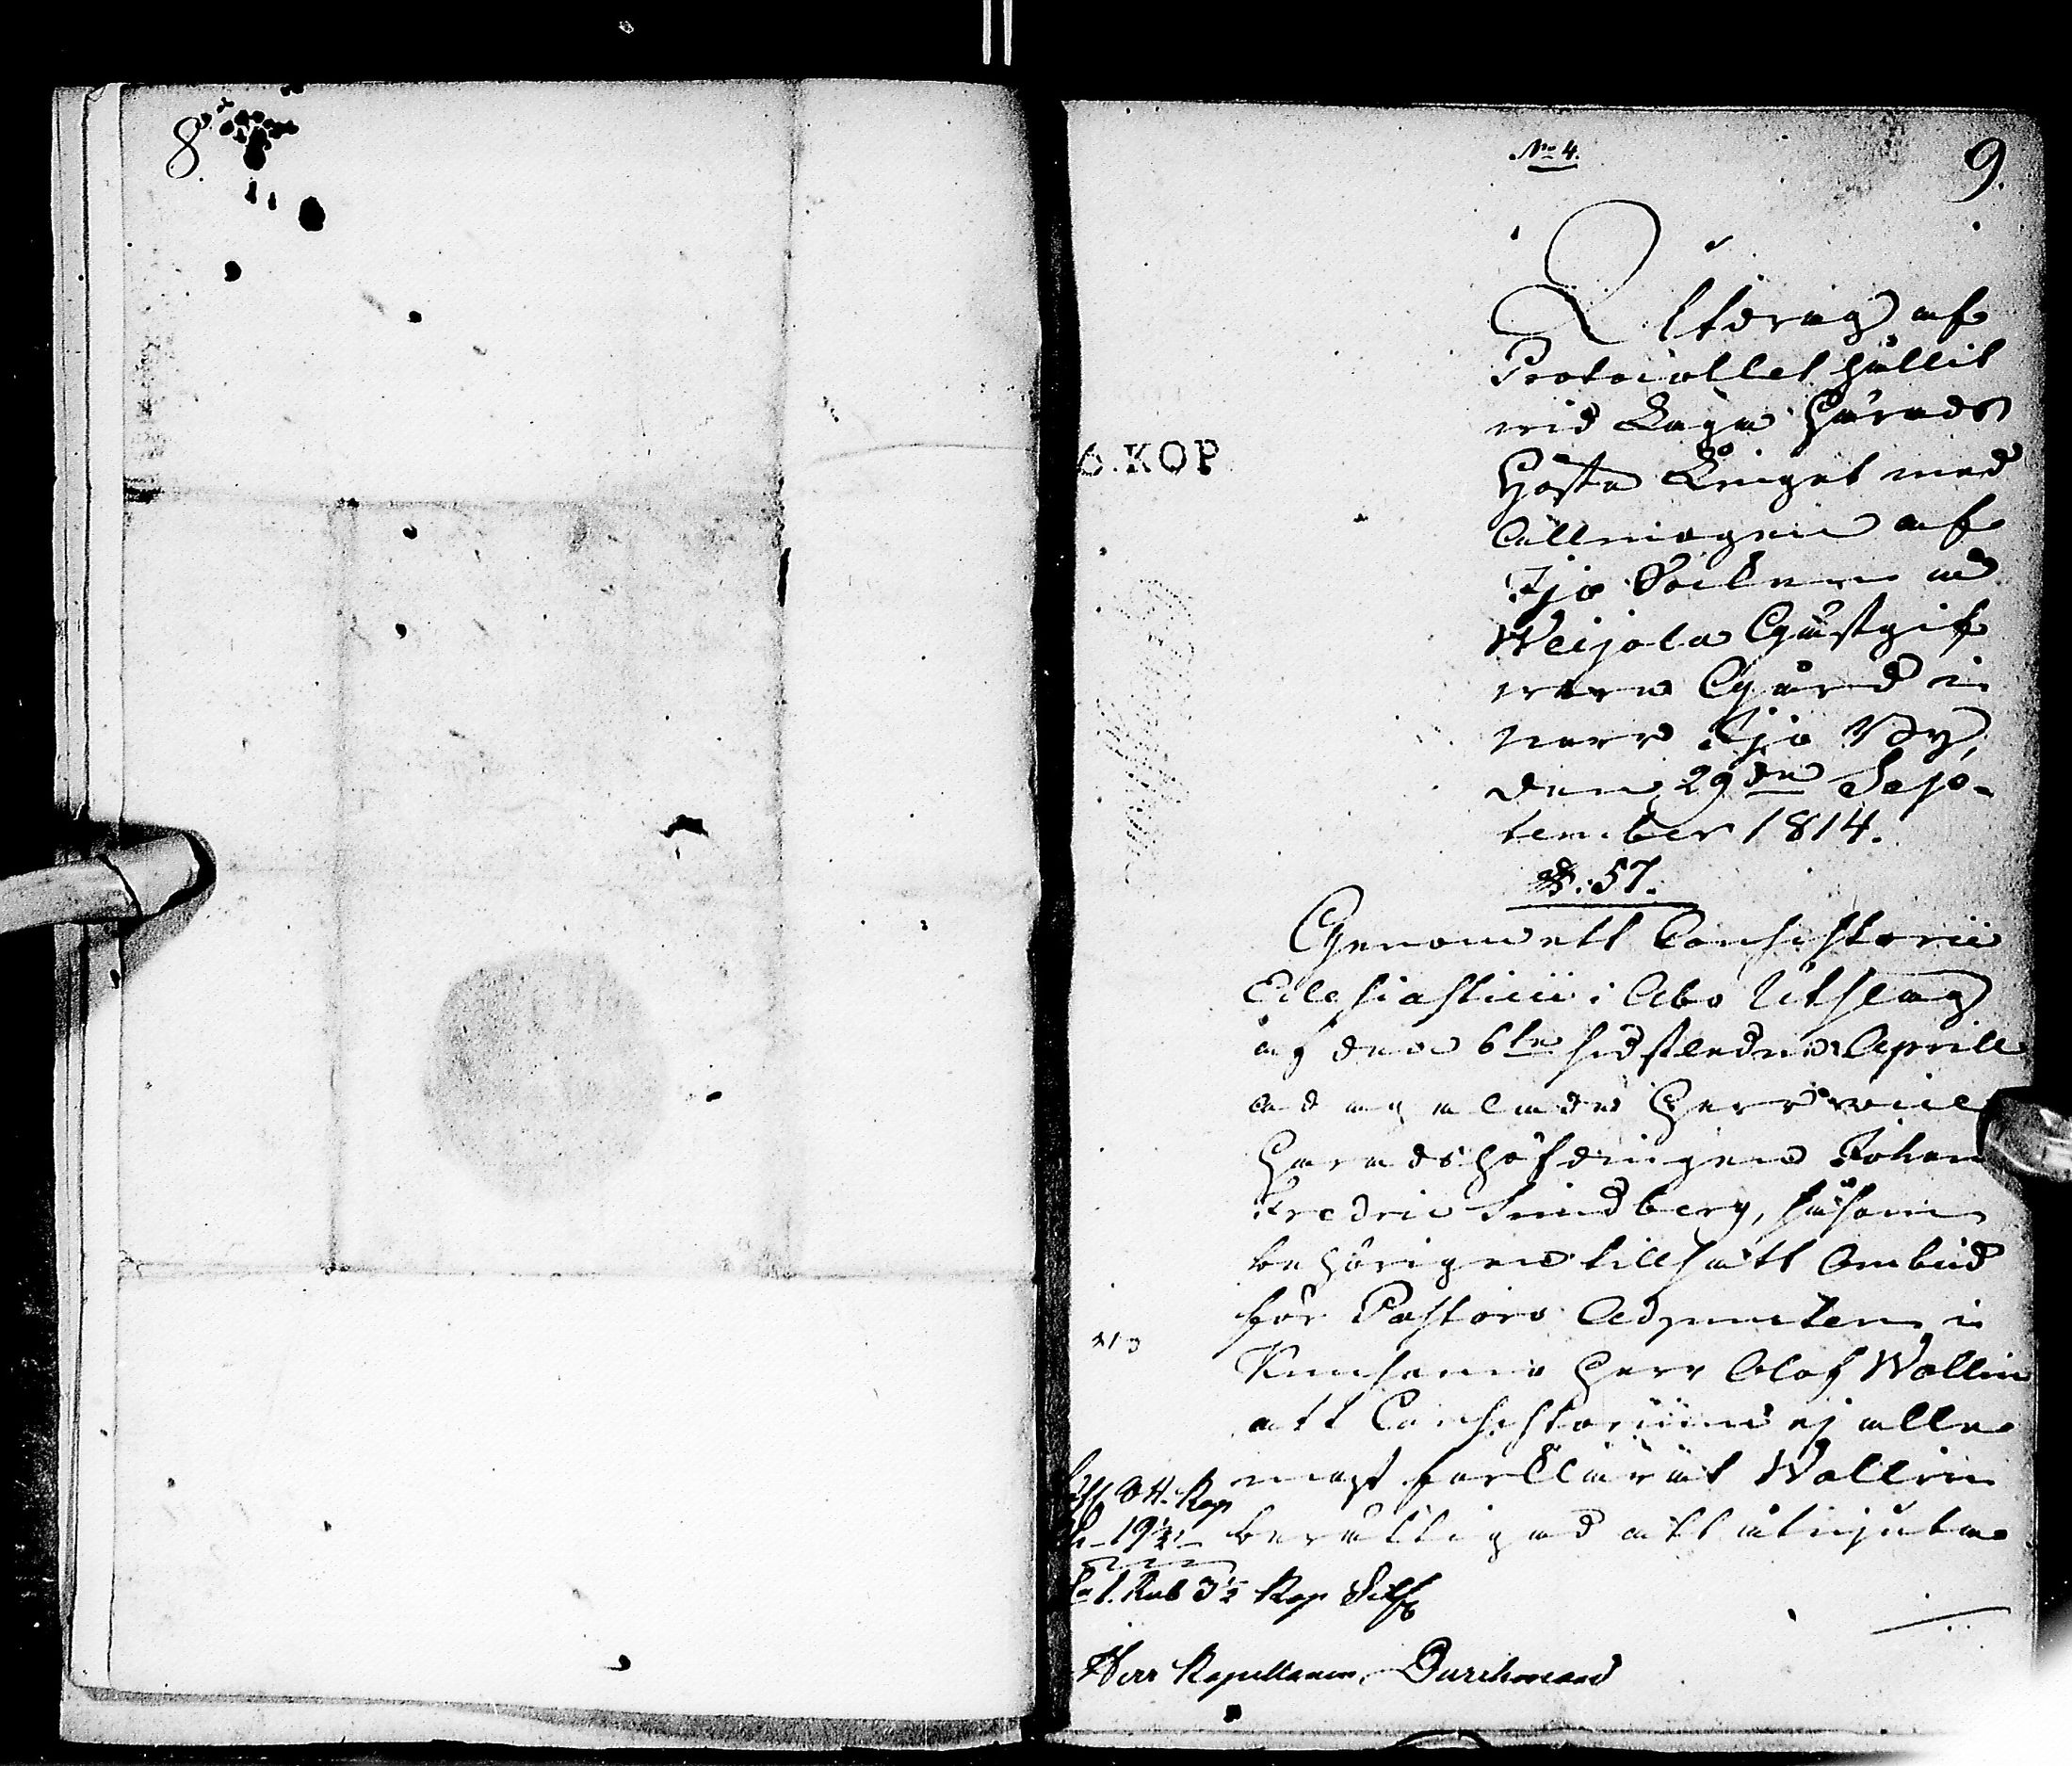 8.
No 4.
9.
Utdrag af
Protocollet hållit
vid Laga Härads
Höste Tinget med
Allmogen af
Ijo Socken å
Weijola Gästgif
vare Gård i
norr Ijo By,
den 29de Sep-
tember 1814.
§: 57.
6. KOP
Genom ett Consistorii
Eclesiasticii i Åbo Utslag
af den 6te sidstledne Aprill
ad agalades Herr vice
Häradshöfdingen Johan
Fredric Sundberg, såsom
behörigen tillsatt Ombud
för Pastors Adjuncten i
Kuusamo Herr Olof Wallin
att Consistorium ej alle
nast förklarat Wallin
berättigad att åtnjuta
84. Kop
19½
1. Rub 3½ Kop Silf
Herr Kapellanen Durchman